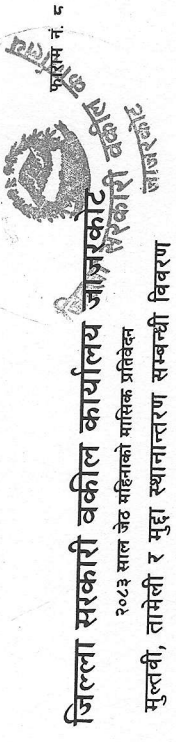 फाराम नं. ८
जिल्ला सरकारी वकील कार्यालय जाजरकोट
२०८३ साल जेठ महिनाको मासिक प्रतिवेदन
मुल्तवी, तामेली र मुद्दा स्थानान्तरण सम्बन्धी विवरण
सरकारी वकील कार्यालय
जाजरकोट